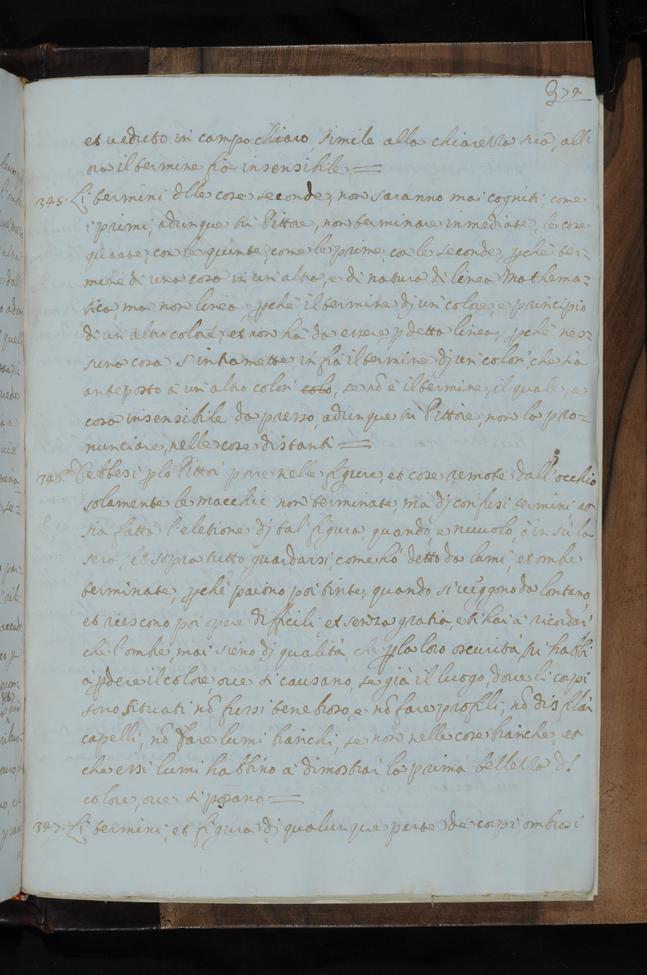 374
et ueduto in campo chiaro, simile alla chiarezza sua, all'
ora il termine fia insensibile =
345. Li termini dlle cose seconde, non saranno mai cogniti, come
i primi, adunque tu Pittore, non terminare inmediate, le cose
quarte, con le quinte, come le prime, con le seconde, pche ter=
mine di una cosa in un'altra, e di natura di linea Mathema=
tica ma non linea, pche il termine dj un' colore, e principio
di un'altro colore, et non ha da essere p detta linea, pche nes=
suna cosa s'intramette, in fra il termine dj un' colori, che sia
anteposto a un'altro colori colo, se nō è il termine, il quale, e
cosa insensibile da presso, adunque tu Pittore, non la pro=
nunciare, nelle cose distanti =
346. Debbesi plo Pittor porre nelle figure, et cose remote dall'occhio
solamente le macchie non terminate, ma dj confusi termini et
sia fatta l'eletione dj tal' figura quando, e nuuolo, ò in sù la
sera, et sopra tutto guardarsi, come hò detto da lumi, et ombre
terminate, pche paiono poi tinte, quando si ueggono da lontano,
et riescono poi opere difficili et senza gratia, e ti hai a ricordar
che l'ombre mai sieno dj qualità, che pla loro oscurità, tu habbi
à pdere il colore oue si causano, se già il luogo, doue li corpi
sono situati nō fussi tenebroso, e nō fare profili, nō disfilar
capelli, nō dare lumi bianchi, se non nelle cose bianche, et
che essi lumi habbino a dimostrar la prima bellezza dl
colore, oue si posano =
347. Li termini, et figura dj qualunque parte de corpi ombrosi